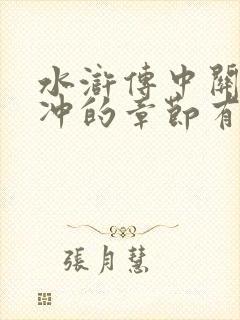 水滸傳中關
冲的章節有
張月慧